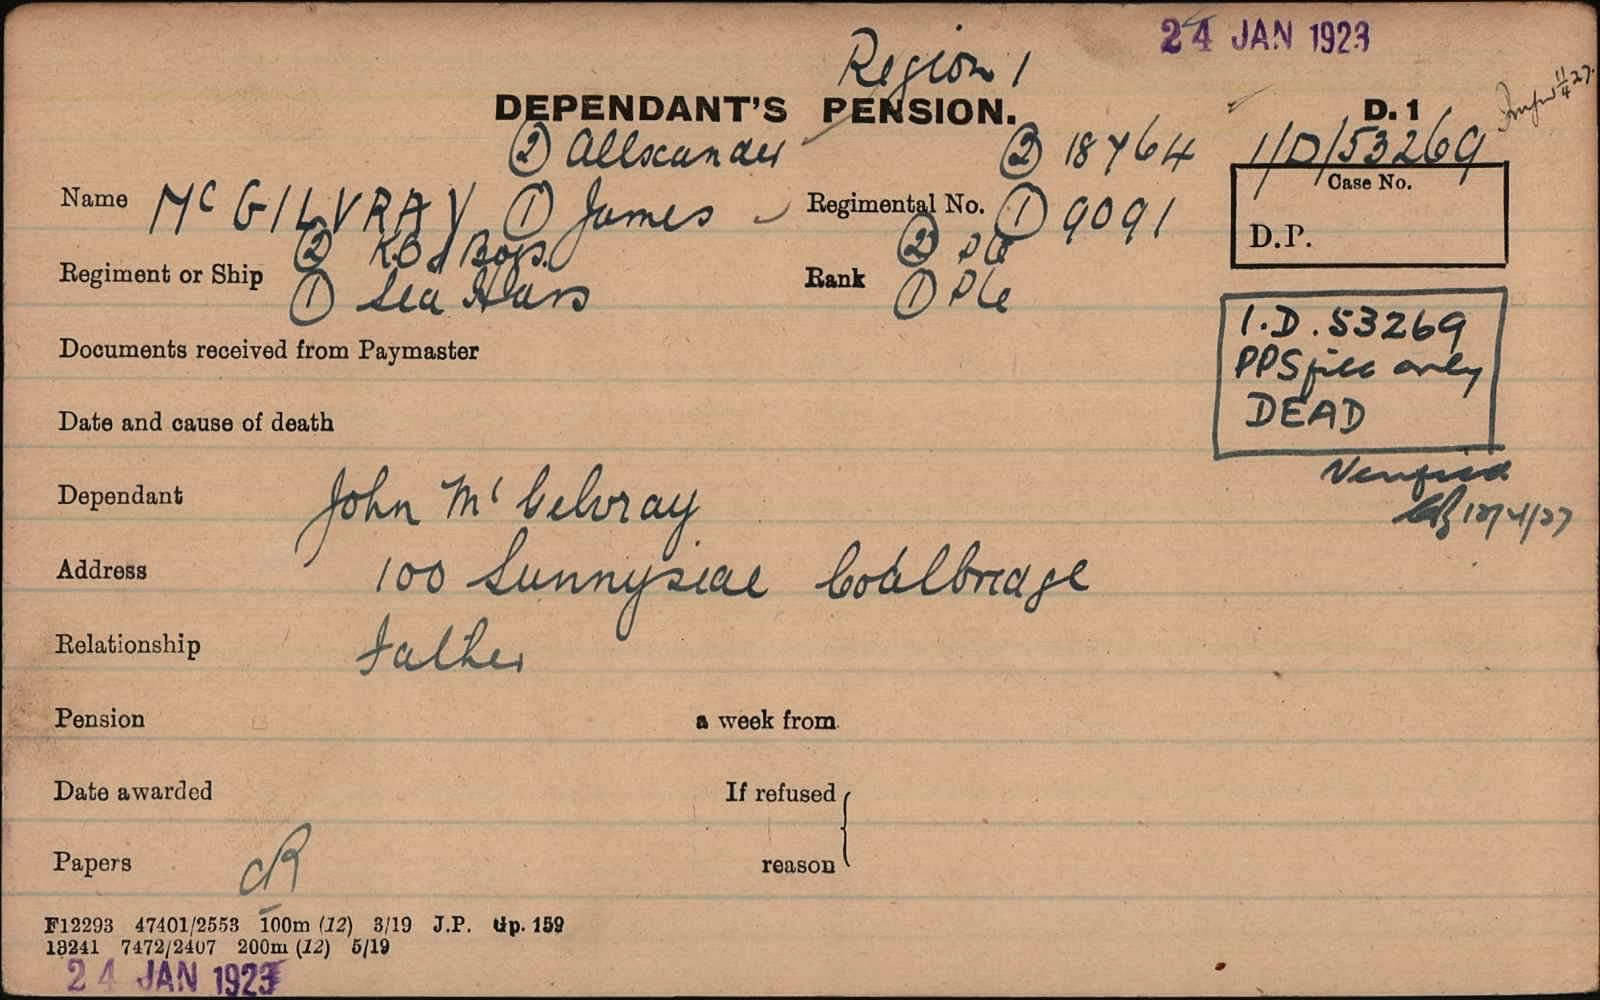 24 JAN 1923
Region 1
DEPENDANT'S PENSION.
D. 1
11/4 27.
② Allscander ② 18764 1/D/53269
Name McGILVRAY ① James Regimental No. ① 9091
Case No.
D.P.
② K.O.S Bors. ② Pte
Regiment or Ship ① Sea Hrs Rank ① Pte
I.D. 53269
PPS file only
DEAD
Documents received from Paymaster
Date and cause of death
Verified
12/4/27
Dependant John McGelvray
Address 100 Sunnyside Coalbridge
Relationship Father
Pension a week from
Date awarded If refused
Papers CR reason
F12293 47401/2553 100m (12) 3/19 J.P. Gp. 159
13241 7472/2407 200m (12) 5/19
24 JAN 1923